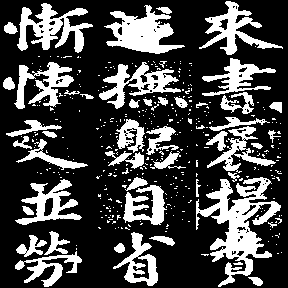 來書褒揚贊
逾撫躬自省
慚悚交並勞